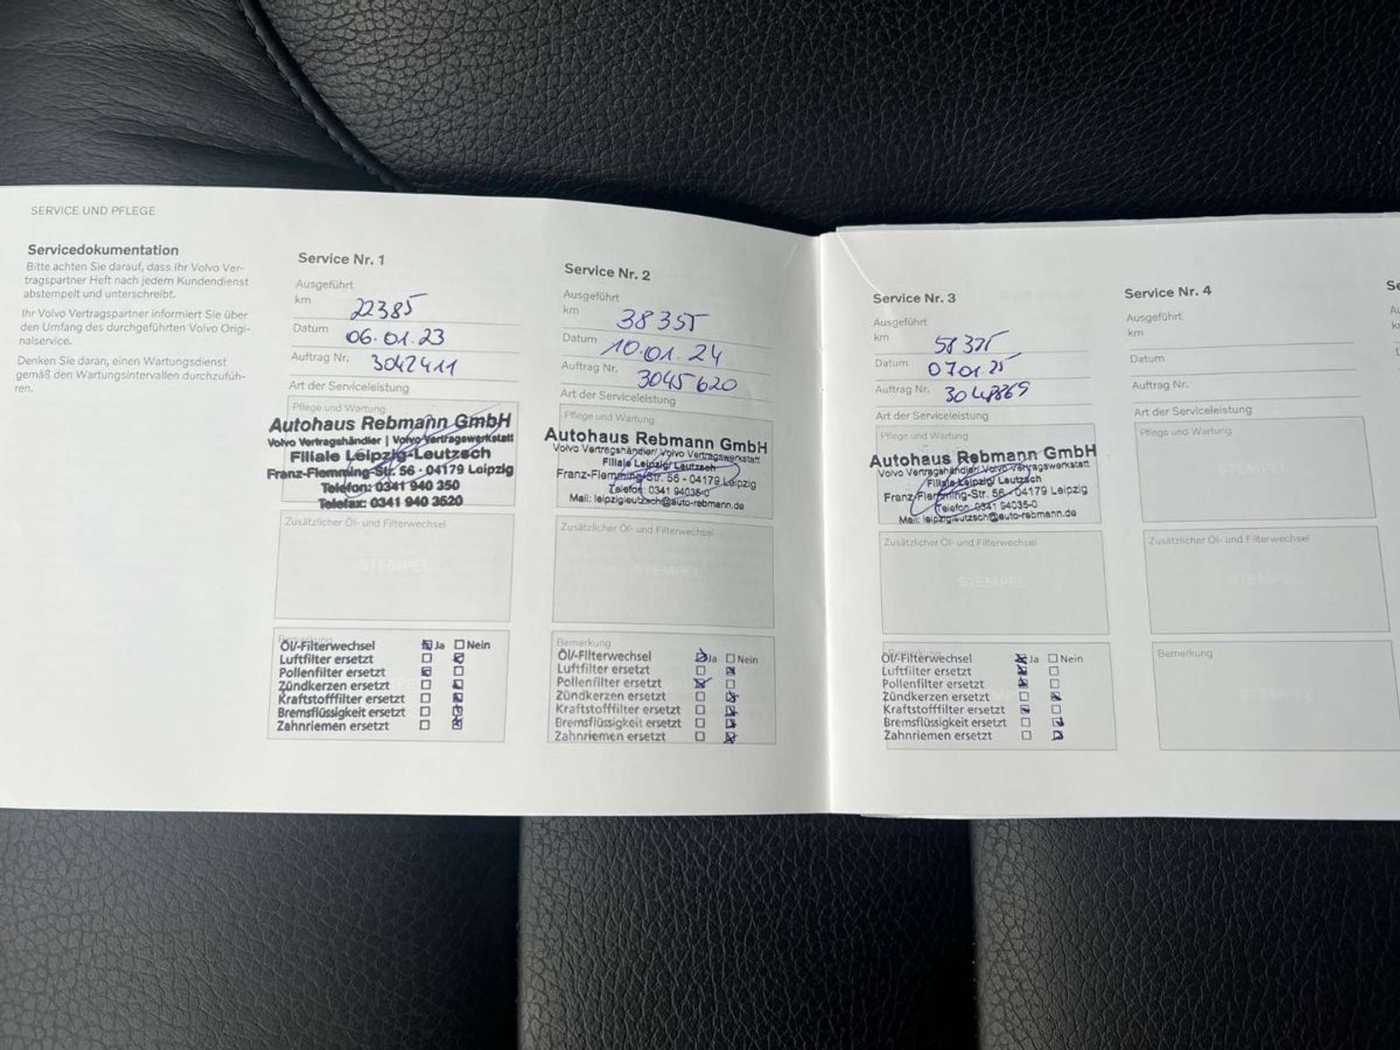 SERVICE UND PFLEGE
Servicedokumentation
Bitte achten Sie darauf, dass Ihr Volvo Ver-
tragspartner Heft nach jedem Kundendienst
abstempelt und unterschreibt.
Ihr Volvo Vertragspartner informiert Sie über
den Umfang des durchgeführten Volvo Origi-
nalservice.
Denken Sie daran, einen Wartungsdienst
gemäß den Wartungsintervallen durchzufüh-
ren.
Service Nr. 1
Ausgeführt
km 22385
Datum 06.01.23
Auftrag Nr. 3042411
Art der Serviceleistung
Pflege und Wartung
Autohaus Rebmann GmbH
Volvo Vertragshändler | Volvo Vertragswerkstatt
Filiale Leipzig-Leutzsch
Franz-Flemming-Str. 56 - 04179 Leipzig
Telefon: 0341 940 350
Telefax: 0341 940 3520
Zusätzlicher Öl- und Filterwechsel
STEMPEL
Bemerkung
Öl/-Filterwechsel Ja Nein
Luftfilter ersetzt
Pollenfilter ersetzt
Zündkerzen ersetzt
Kraftstofffilter ersetzt
Bremsflüssigkeit ersetzt
Zahnriemen ersetzt
Service Nr. 2
Ausgeführt
km 38355
Datum 10.01.24
Auftrag Nr. 3045620
Art der Serviceleistung
Pflege und Wartung
Autohaus Rebmann GmbH
Volvo Vertragshändler/ Volvo Vertragswerkstatt
Filiale Leipzig/ Leutzsch
Franz-Flemming-Str. 56 - 04179 Leipzig
Telefon: 0341 94035-0
Mail: leipzigleutzsch@auto-rebmann.de
Zusätzlicher Öl- und Filterwechsel
STEMPEL
Bemerkung
Öl/-Filterwechsel Ja Nein
Luftfilter ersetzt
Pollenfilter ersetzt
Zündkerzen ersetzt
Kraftstofffilter ersetzt
Bremsflüssigkeit ersetzt
Zahnriemen ersetzt
Service Nr. 3
Ausgeführt
km 58375
Datum 07.01.25
Auftrag Nr. 3048869
Art der Serviceleistung
Pflege und Wartung
Autohaus Rebmann GmbH
Volvo Vertragshändler/ Volvo Vertragswerkstatt
Filiale Leipzig/ Leutzsch
Franz-Flemming-Str. 56 - 04179 Leipzig
Telefon: 0341 94035-0
Mail: leipzigleutzsch@auto-rebmann.de
Zusätzlicher Öl- und Filterwechsel
STEMPEL
Bemerkung
Öl/-Filterwechsel Ja Nein
Luftfilter ersetzt
Pollenfilter ersetzt
Zündkerzen ersetzt
Kraftstofffilter ersetzt
Bremsflüssigkeit ersetzt
Zahnriemen ersetzt
Service Nr. 4
Ausgeführt
km
Datum
Auftrag Nr.
Art der Serviceleistung
Pflege und Wartung
STEMPEL
Zusätzlicher Öl- und Filterwechsel
STEMPEL
Bemerkung
STEMPEL